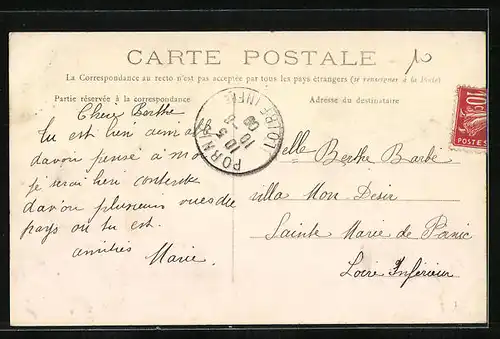 CARTE POSTALE
10
La Correspondance au recto n'est pas acceptée par tous les pays étrangers (se renseigner à la Poste)
Partie réservée à la correspondance
Adresse du destinataire
Chère Berthe
Tu est bien aimable
d'avoir pensé à moi
je serai bien contente
d'avoir plusieurs vues du
pays ou tu est.
amitiés
Marie.
PORNIC
LOIRE INFRE
10
POSTES
elle Berthe Barbé
villa Mon Désir
Sainte Marie de Pornic
Loire Inférieur